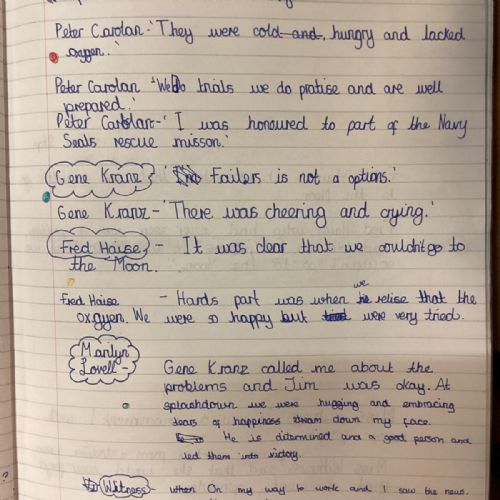 Peter Carolan - 'They were cold and, hungry and lacked
oxygen.'
Peter Carolan 'We Do trials we do pratise and are well
prepared.'
Peter Carolan - 'I was honoured to part of the Navy
Seals rescue misson.'
Gene Kranz - ' Failers is not a options.'
Gene Kranz - 'There was cheering and crying.'
Fred Haise - It was clear that we couldn't go to
the Moon.
Fred Haise - Hards part was when we relise that the
oxgyen. We were so happy but were very tried.
Marilyn
Lovell -
Gene Kranz called me about the
problems and Jim was okay. At
splashdown we were hugging and embracing
tears of happiness down my face.
He is determined and a good person and
led them into victory.
Witness - when On my way to work and I saw the news.